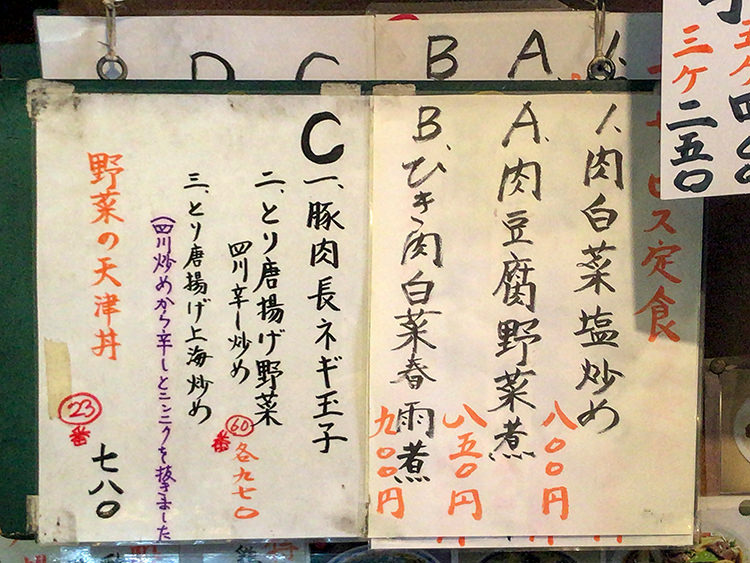 五ケ四〇〇
三ケ二五〇
ス定食
1、肉白菜塩炒め
八〇〇円
A、肉豆腐野菜煮
八五〇円
B、ひき肉白菜春雨煮
九〇〇円
C
一、豚肉長ネギ玉子
二、とり唐揚げ野菜
四川辛し炒め
三、とり唐揚げ上海炒め
60番 各九七〇
(四川炒めから辛しとニンニクを抜きました
野菜の天津丼
23番 七八〇
A
B
C
D